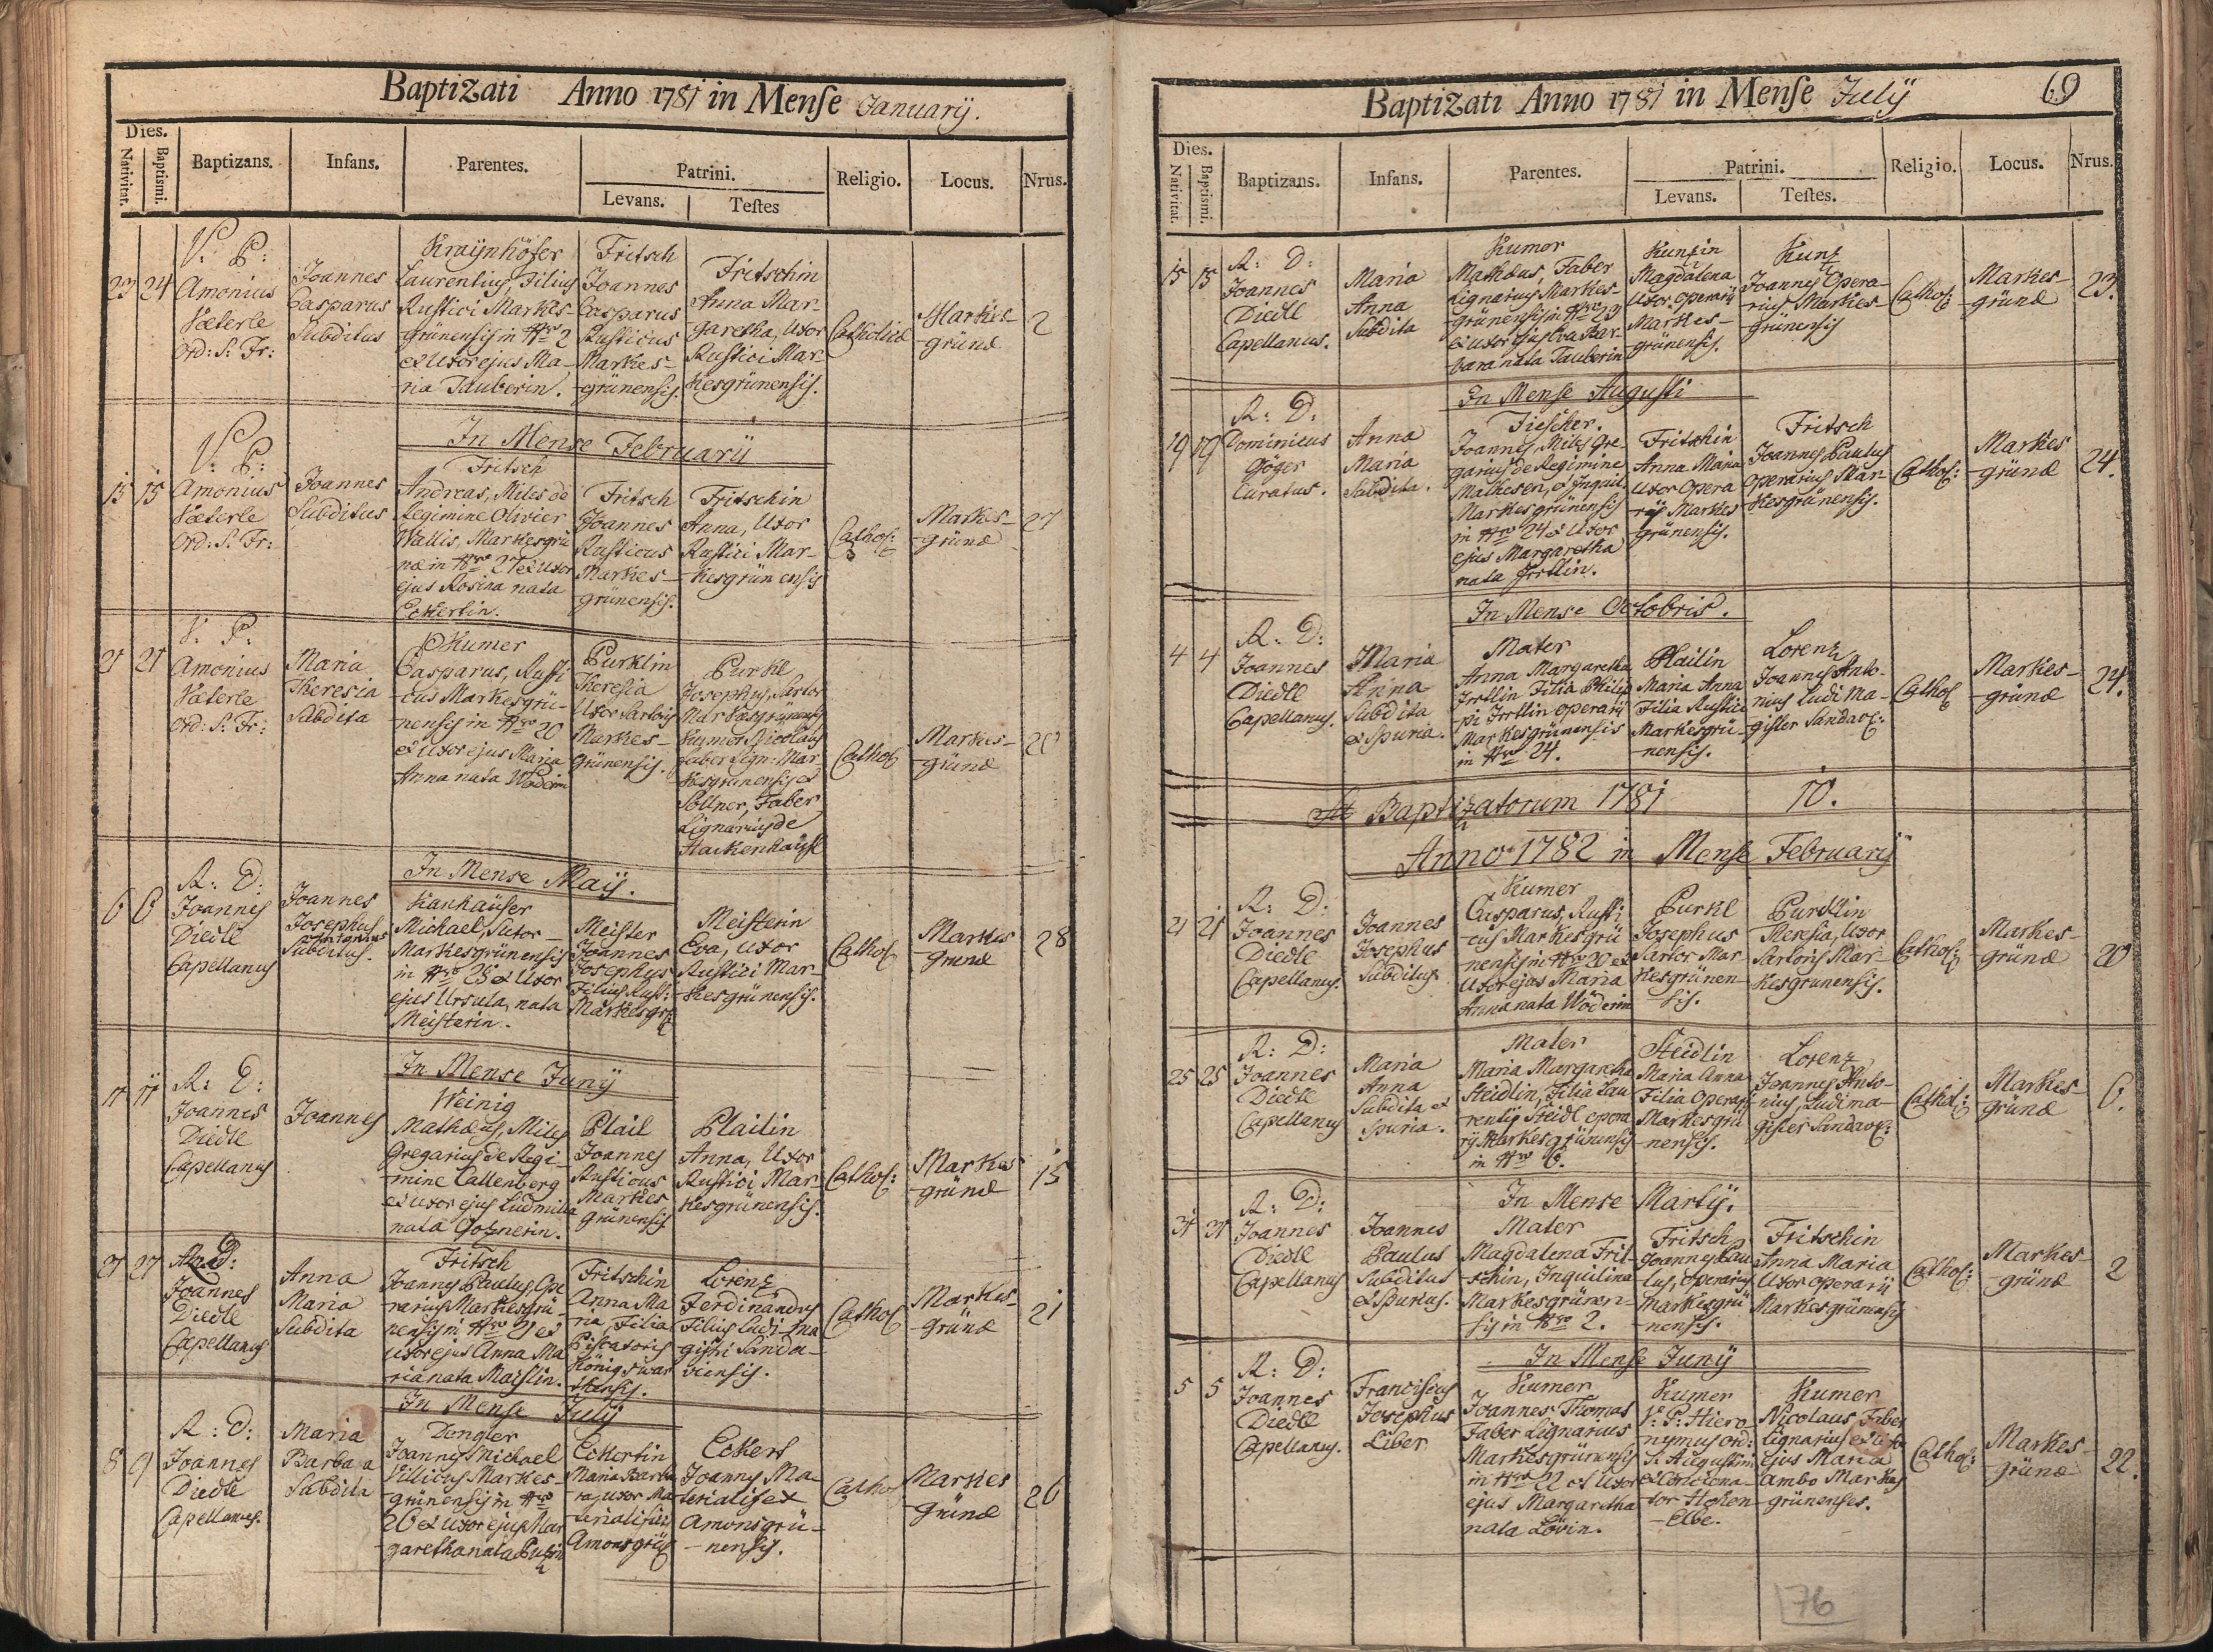 Baptizati Anno 1781 in Mense Januarij.
Dies.
Nativitat.
Baptismi.
Baptizans.
Infans.
Parentes.
Patrini.
Levans.
Testes
Religio.
Locus.
Nrus.
23 24
V: P:
Amonius
Væterle
Ord: S: Fr:
Joannes
Casparus
Subditus
Kraÿnhöfer
Laurentius, Filius
Rustici Markes-
grünensis in Nro 2
et Uxor ejus Ma-
ria Tauberin.
Fritsch
Joannes
Casparus
Rusticus
Markes-
grünensis.
Fritschin
Anna Mar-
garetha, Uxor
Rustici Mar-
kesgrünensis.
Catholicæ
Markes-
grünæ
2
In Mense Februarij
15 15
V: P:
Amonius
Væterle
Ord: S: Fr:
Joannes
Subditus
Fritsch
Andreas, Miles de
Regimine Olivier
Wallis, Markesgrü
næ in Nro 27 et Uxor
ejus Rosina nata
Eckertin.
Fritsch
Joannes
Rusticus
Markes-
grünensis.
Fritschin
Anna, Uxor
Rustici Mar-
kesgrünensis
Cathol:
Markes-
grünæ
27
21 21
V: P:
Amonius
Væterle
Ord: S: Fr:
Maria
Theresia
Subdita
Kumer
Casparus, Rusti
cus Markesgrü-
nensis in Nro 20
et Uxor ejus Maria
Anna nata Wöderin
Purklin
Theresia
Uxor Sartoris
Markes-
grünensis.
Purkl
Josephus, Sartor
Markesgrünensis
Kumer Nicolaus
Faber Lign: Mar
kesgrünensis et
Söllner, Faber
Lignarius de
Stockenhäusl
Cathol
Markes-
grünæ
20
In Mense Maij.
6 6
R: D:
Joannes
Diedle
Capellanus
Joannes
Josephus
Antonius
Subditus.
Kanhäuser
Michael, Sutor
Markesgrünensis
in Nro 28 et Uxor
ejus Ursula, nata
Meisterin.
Meister
Joannes
Josephus
Filius Rust:
Markesgr:
Meisterin
Eva, Uxor
Rustici Mar-
kesgrünensis.
Cathol
Markes
grünæ
28
In Mense Junij
11 11
R: D:
Joannes
Diedle
Capellanus
Joannes
Weinig
Mathæus, Miles
Gregarius de Regi-
mine Callenberg
et Uxor ejus Ludmilla
nata
Plail
Joannes
Rusticus
Markes
grünensis
Plailin
Anna, Uxor
Rustici Mar
kesgrünensis.
Cathol:
Markes
grünæ
15
27 27
R: D:
Joannes
Diedle
Capellanus
Anna
Maria
Subdita
Fritsch
Joannes Paulus, Ope
rarius Markesgrü-
nensis in Nro 21 et
Uxor ejus Anna Ma
ria nata Maislin.
Fritschin
Anna Ma
ria, Filia
Piscatoris
Königswar
thensis.
Lorenz
Ferdinandus
Filius Ludi-ma
gistri Sanda-
viensis.
Cathol
Markes-
grünæ
21
In Mense Julij
8 9
R: D:
Joannes
Diedle
Capellanus.
Maria
Barbara
Subdita
Dengler
Joannes Michael
Villicus Markes
grünensis in Nro
26 et Uxor ejus Mar
garetha nata
Eckertin
Maria Barba
ra, Uxor Ma
terialistæ
Amonsgrü
Eckert
Joannes Ma
terialist ex
Amonsgrü-
nensis.
Cathol
Markes
grünæ
26
Baptizati Anno 1781 in Mense Julij
69
Dies.
Nativitat.
Baptismi.
Baptizans.
Infans.
Parentes.
Patrini.
Levans.
Testes.
Religio.
Locus.
Nrus.
15 15
R: D:
Joannes
Diedle
Capellanus.
Maria
Anna
Subdita
Kumer
Mathæus, Faber
Lignarius Markes-
grünensis in Nro 23
et uxor ejus Eva Bar-
bara nata Tauberin
Kunzin
Magdalena
Uxor operarij
Markes-
grünensis.
Kunz
Joannes Opera-
rius Markes-
grünensis
Cathol:
Markes-
grünæ
23.
In Mense Augusti
19 19
R: D:
Dominicus
Göger
Curatus.
Anna
Maria
Subdita.
Fiescher.
Joannes, Miles Gre-
garius de Regimine
Mathesen, et Inquil.
Markesgrünensis
in Nro 24 et Uxor
ejus Margaretha
nata Irrtlin.
Fritschin
Anna Maria
Uxor Opera
rij Markes
grünensis.
Fritsch
Joannes Paulus
Operarius Mar-
kesgrünensis.
Cathol:
Markes
grünæ
24.
In Mense Octobris.
4 4
R: D:
Joannes
Diedle
Capellanus.
Maria
Anna
Subdita
et Spuria.
Mater
Anna Margaretha
Irrtlin Filia Philip
pi Irrtlin operarij
Markesgrünensis
in Nro 24.
Plailin
Maria Anna
Filia Rustici
Markesgrü-
nensis.
Lorenz
Joannes Anto-
nius Ludi Ma-
gister Sandav:
Cathol
Markes-
grünæ
24.
Baptizatorum 1781 10.
Anno 1782 in Mense Februarij
21 21
R: D:
Joannes
Diedle
Capellanus.
Joannes
Josephus
Subditus
Kumer
Casparus, Rusti
cus Markesgrü
nensis in Nro 20 et
Uxor ejus Maria
Anna nata Wöderin
Purkl
Josephus
Sartor Mar-
kesgrünen-
sis.
Purcklin
Theresia, Uxor
Sartoris Mar-
kesgrunensis.
Cathol:
Markes-
grünæ
20
25 25
R: D:
Joannes
Diedle
Capellanus
Maria
Anna
Subdita et
Spuria.
Mater
Maria Margaretha
Steidlin, Filia Lau
rentij Steidl opera
rij Markesgrünensis
in Nro 6.
Steidlin
Maria Anna
Filia Operarij
Markesgrü
nensis.
Lorenz
Joannes Anto-
nius, Ludima-
gister Sandav:
Cathol:
Markes-
grünæ
6.
In Mense Martij.
31 31
R: D:
Joannes
Diedle
Capellanus
Joannes
Paulus
Subditus
et Spurius.
Mater
Magdalena Frit-
schin, Inquilina
Markesgrünen-
sis in Nro 2.
Fritsch
Joannes Pau
lus, Operarius
Markesgrü
nensis.
Fritschin
Anna Maria
Uxor operarij
Markesgrünensis
Cathol:
Markes-
grünæ
2
In Mense Junij
5 5
R: D:
Joannes
Diedle
Capellanus.
Franciscus
Josephus
Liber
Kumer
Joannes Thomas
Faber Lignarius
Markesgrünensis
in Nro 22 et Uxor
ejus Margaretha
nata Lövin.
Kumer
V: P: Hiero-
nymus Ord:
S: Augustini
et Conciona-
tor Hohen
Elbe.
Kumer
Nicolaus Faber
Lignarius et Uxor
ejus Maria
Ambo Markes
grünenses.
Cathol:
Markes-
grünæ
22.
76